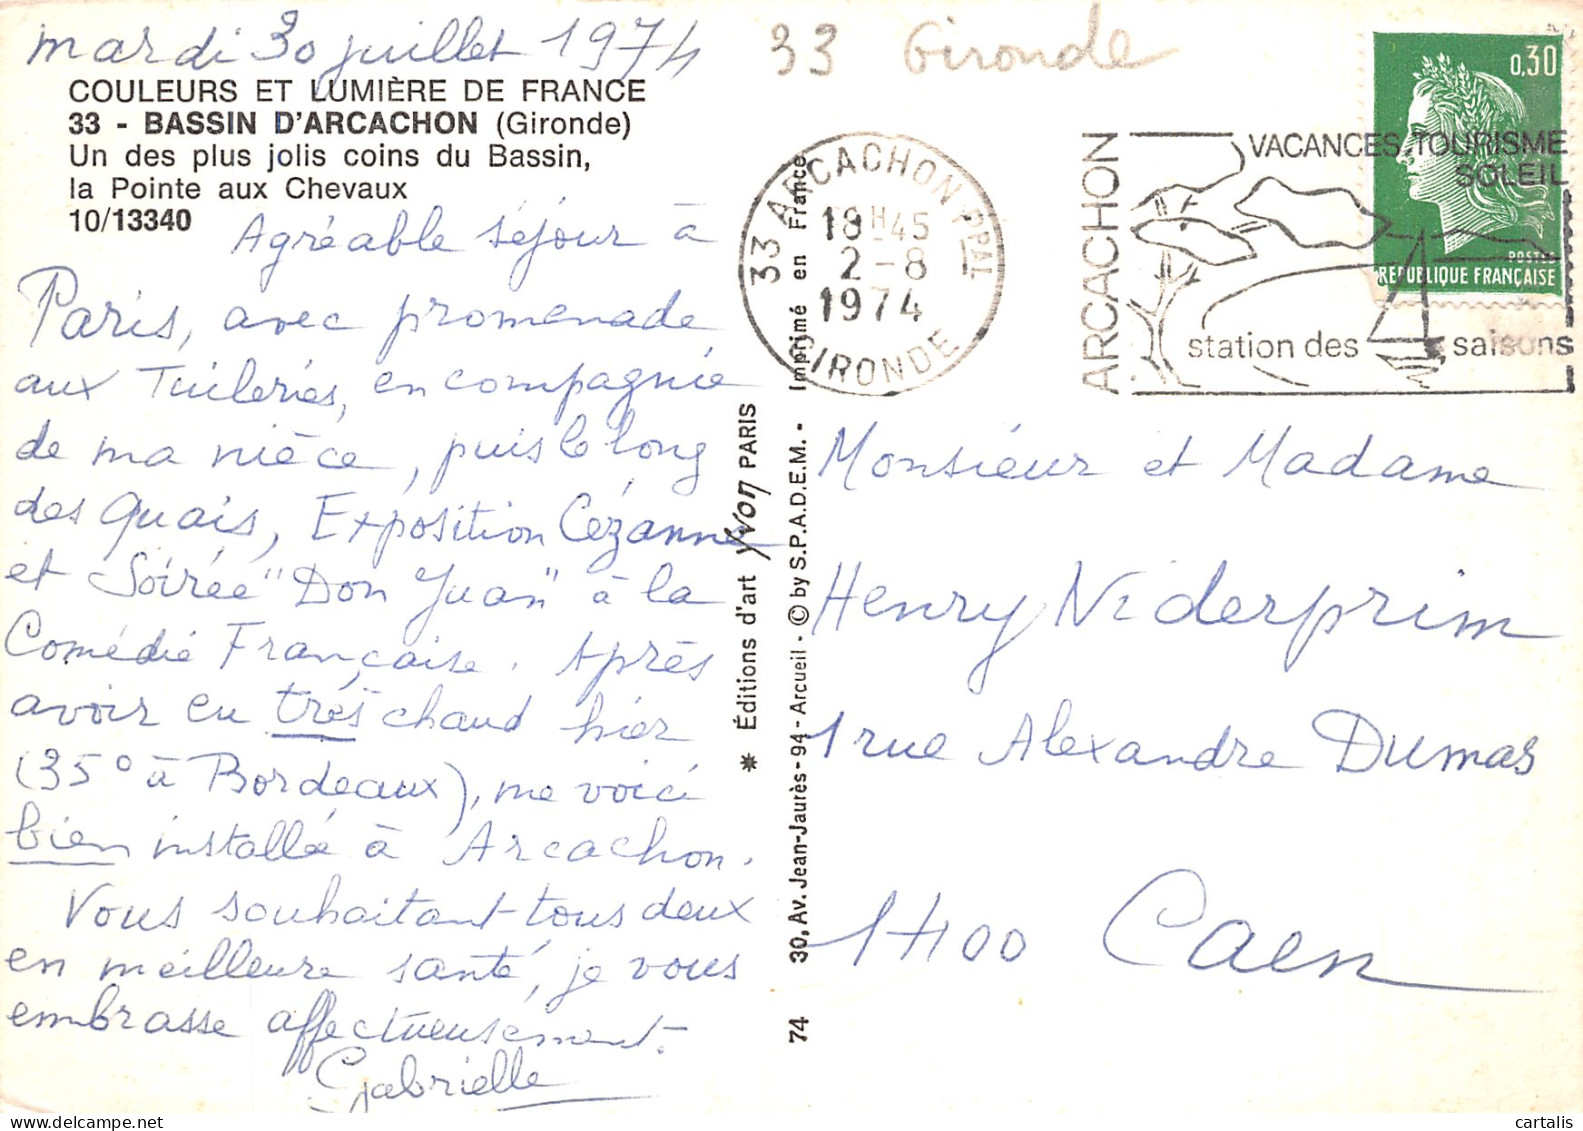 mardi 30 juillet 1974
33 Gironde
COULEURS ET LUMIÈRE DE FRANCE
33 - BASSIN D'ARCACHON (Gironde)
Un des plus jolis coins du Bassin,
la Pointe aux Chevaux
10/13340
Agréable séjour à
Paris, avec promenade
aux Tuileries, en compagnie
de ma nièce, puis le long
des Quais, Exposition Cézanne
et Soirée "Don Juan" à la
Comédie Française. Après
avoir eu très chaud hier
(35° à Bordeaux), me voici
bien installée à Arcachon.
Vous souhaitant tous deux
en meilleure santé, je vous
embrasse affectueusement.
Gabrielle
✷ Éditions d'art Yvon PARIS
74 30, Av. Jean-Jaurès - 94 - Arcueil - © by S.P.A.D.E.M. - Imprimé en France
33 ARCACHON PPAL
18H45
2-8
1974
GIRONDE
ARCACHON
VACANCES.TOURISME
SOLEIL
station des 4 saisons
0,30
POSTES
REPUBLIQUE FRANÇAISE
Monsieur et Madame
Henry Niderprim
1 rue Alexandre Dumas
1400 Caen
cartalis